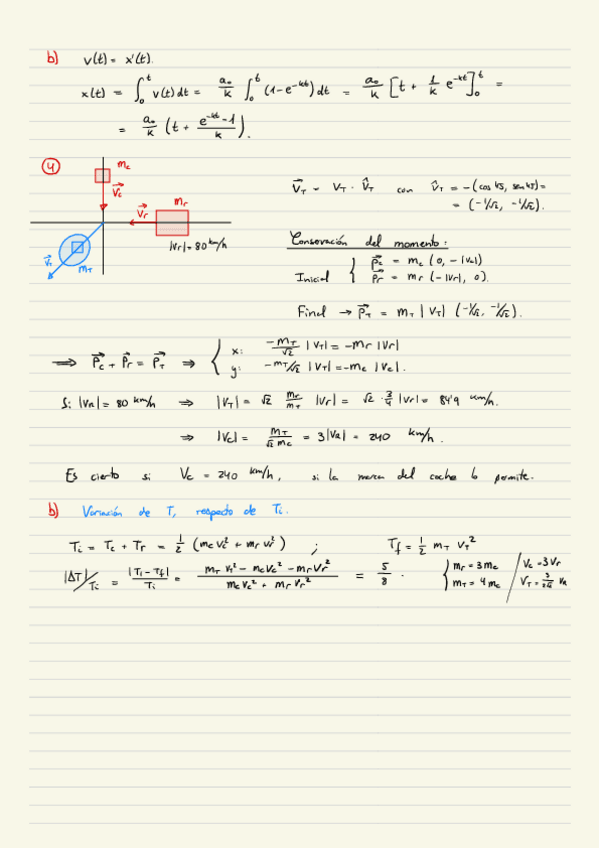 b) v(t) = x'(t).
x(t) = ∫₀ᵗ v(t) dt = a₀/k ∫₀ᵗ (1-e^-kt) dt = a₀/k [t + 1/k e^-kt]₀ᵗ =
= a₀/k (t + (e^-kt - 1)/k).
4
m_c
v⃗_c
m_r
v⃗_r
|v_r| = 80 km/h
v⃗_T
m_T
v⃗_T = v_T · v̂_T con v̂_T = -(cos 45, sen 45) =
= (-1/√2, -1/√2).
Conservación del momento:
Inicial { p⃗_c = m_c (0, -|v_c|)
p⃗_r = m_r (-|v_r|, 0).
Final → p⃗_T = m_T |v_T| (-1/√2, -1/√2).
⇒ p⃗_c + p⃗_r = p⃗_T ⇒ { x: -m_T/√2 |v_T| = -m_r |v_r|
y: -m_T/√2 |v_T| = -m_c |v_c|.
Si |v_R| = 80 km/h ⇒ |v_T| = √2 m_r/m_T |v_r| = √2 · 3/4 |v_r| = 84'9 km/h.
⇒ |v_c| = m_T/(√2 m_c) = 3|v_R| = 240 km/h.
Es cierto si v_c = 240 km/h, si la marca del coche lo permite.
b) Variación de T, respecto de T_i.
T_i = T_c + T_r = 1/2 (m_c v_c² + m_r v_r²) ; T_f = 1/2 m_T v_T²
|ΔT|/T_i = |T_i - T_f|/T_i = (m_T v_T² - m_c v_c² - m_r v_r²)/(m_c v_c² + m_r v_r²) = 5/8 . { m_r = 3m_c / v_c = 3v_r
m_T = 4m_c / v_T = 3/(2√2) v_R